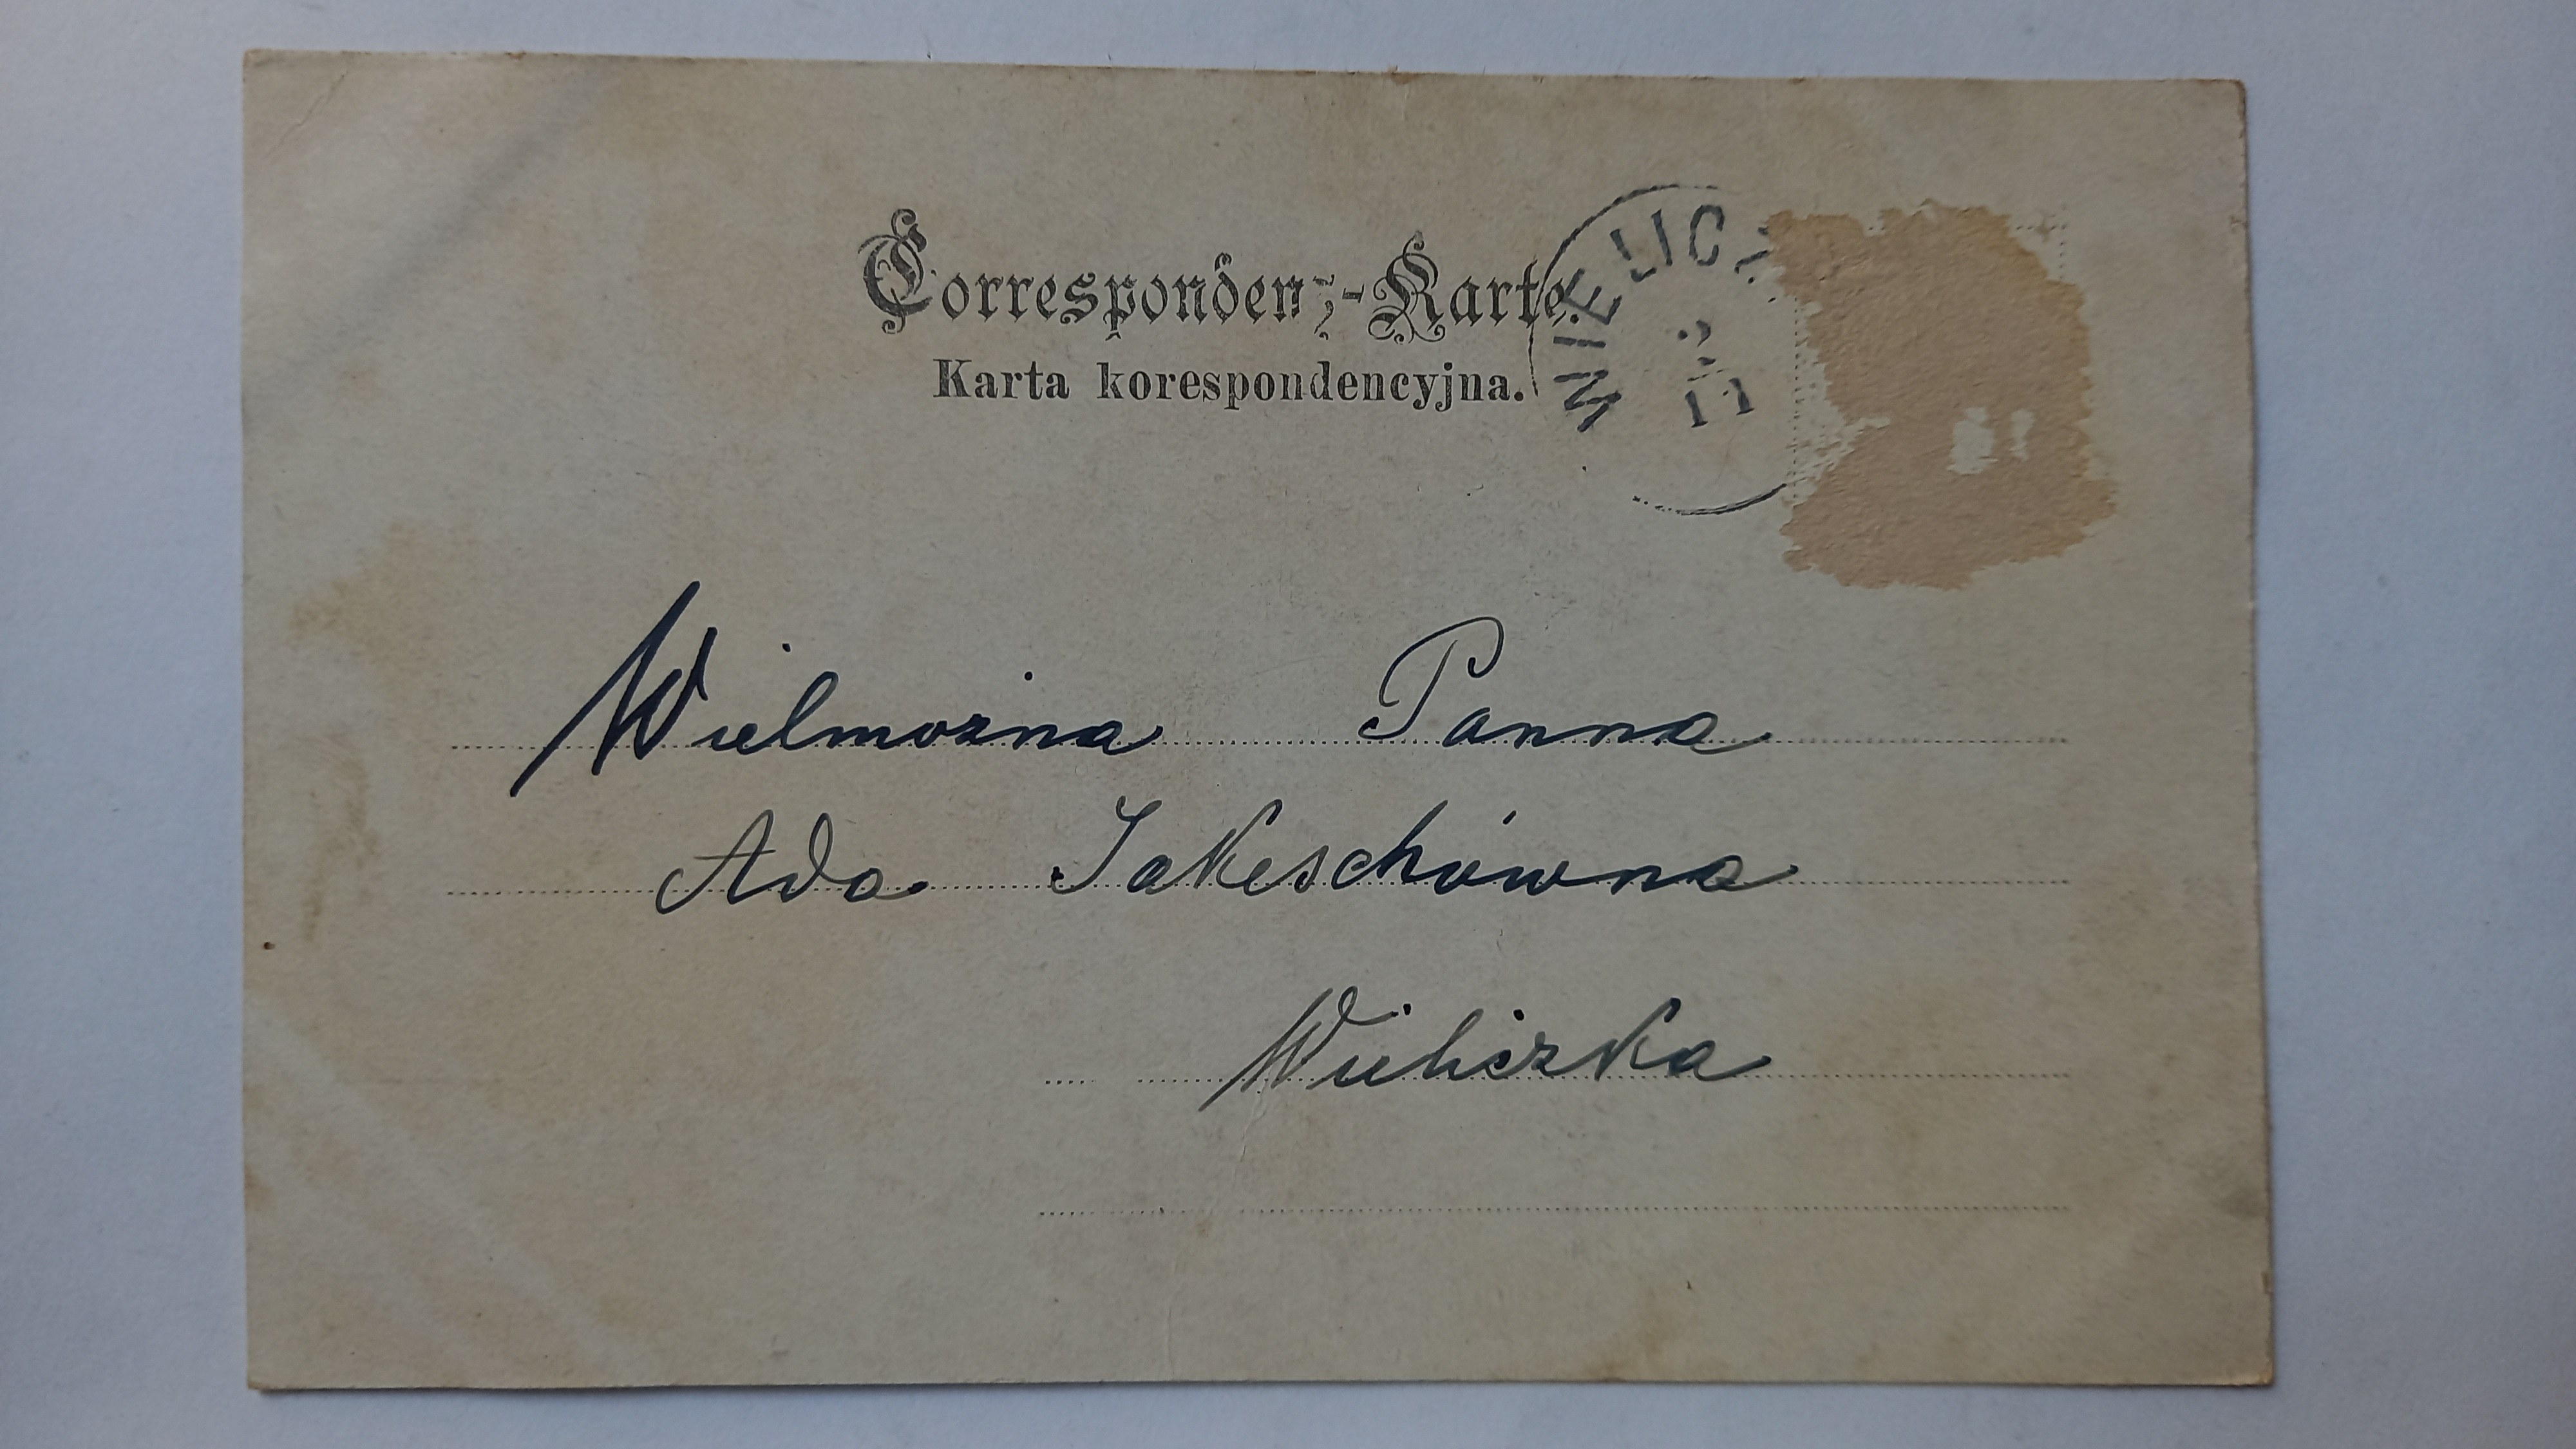 Correspondenz-Karte.
Karta korespondencyjna.
WIELICZ
Wielmożna Panna
Ada Jakeschówna
Wieliczka